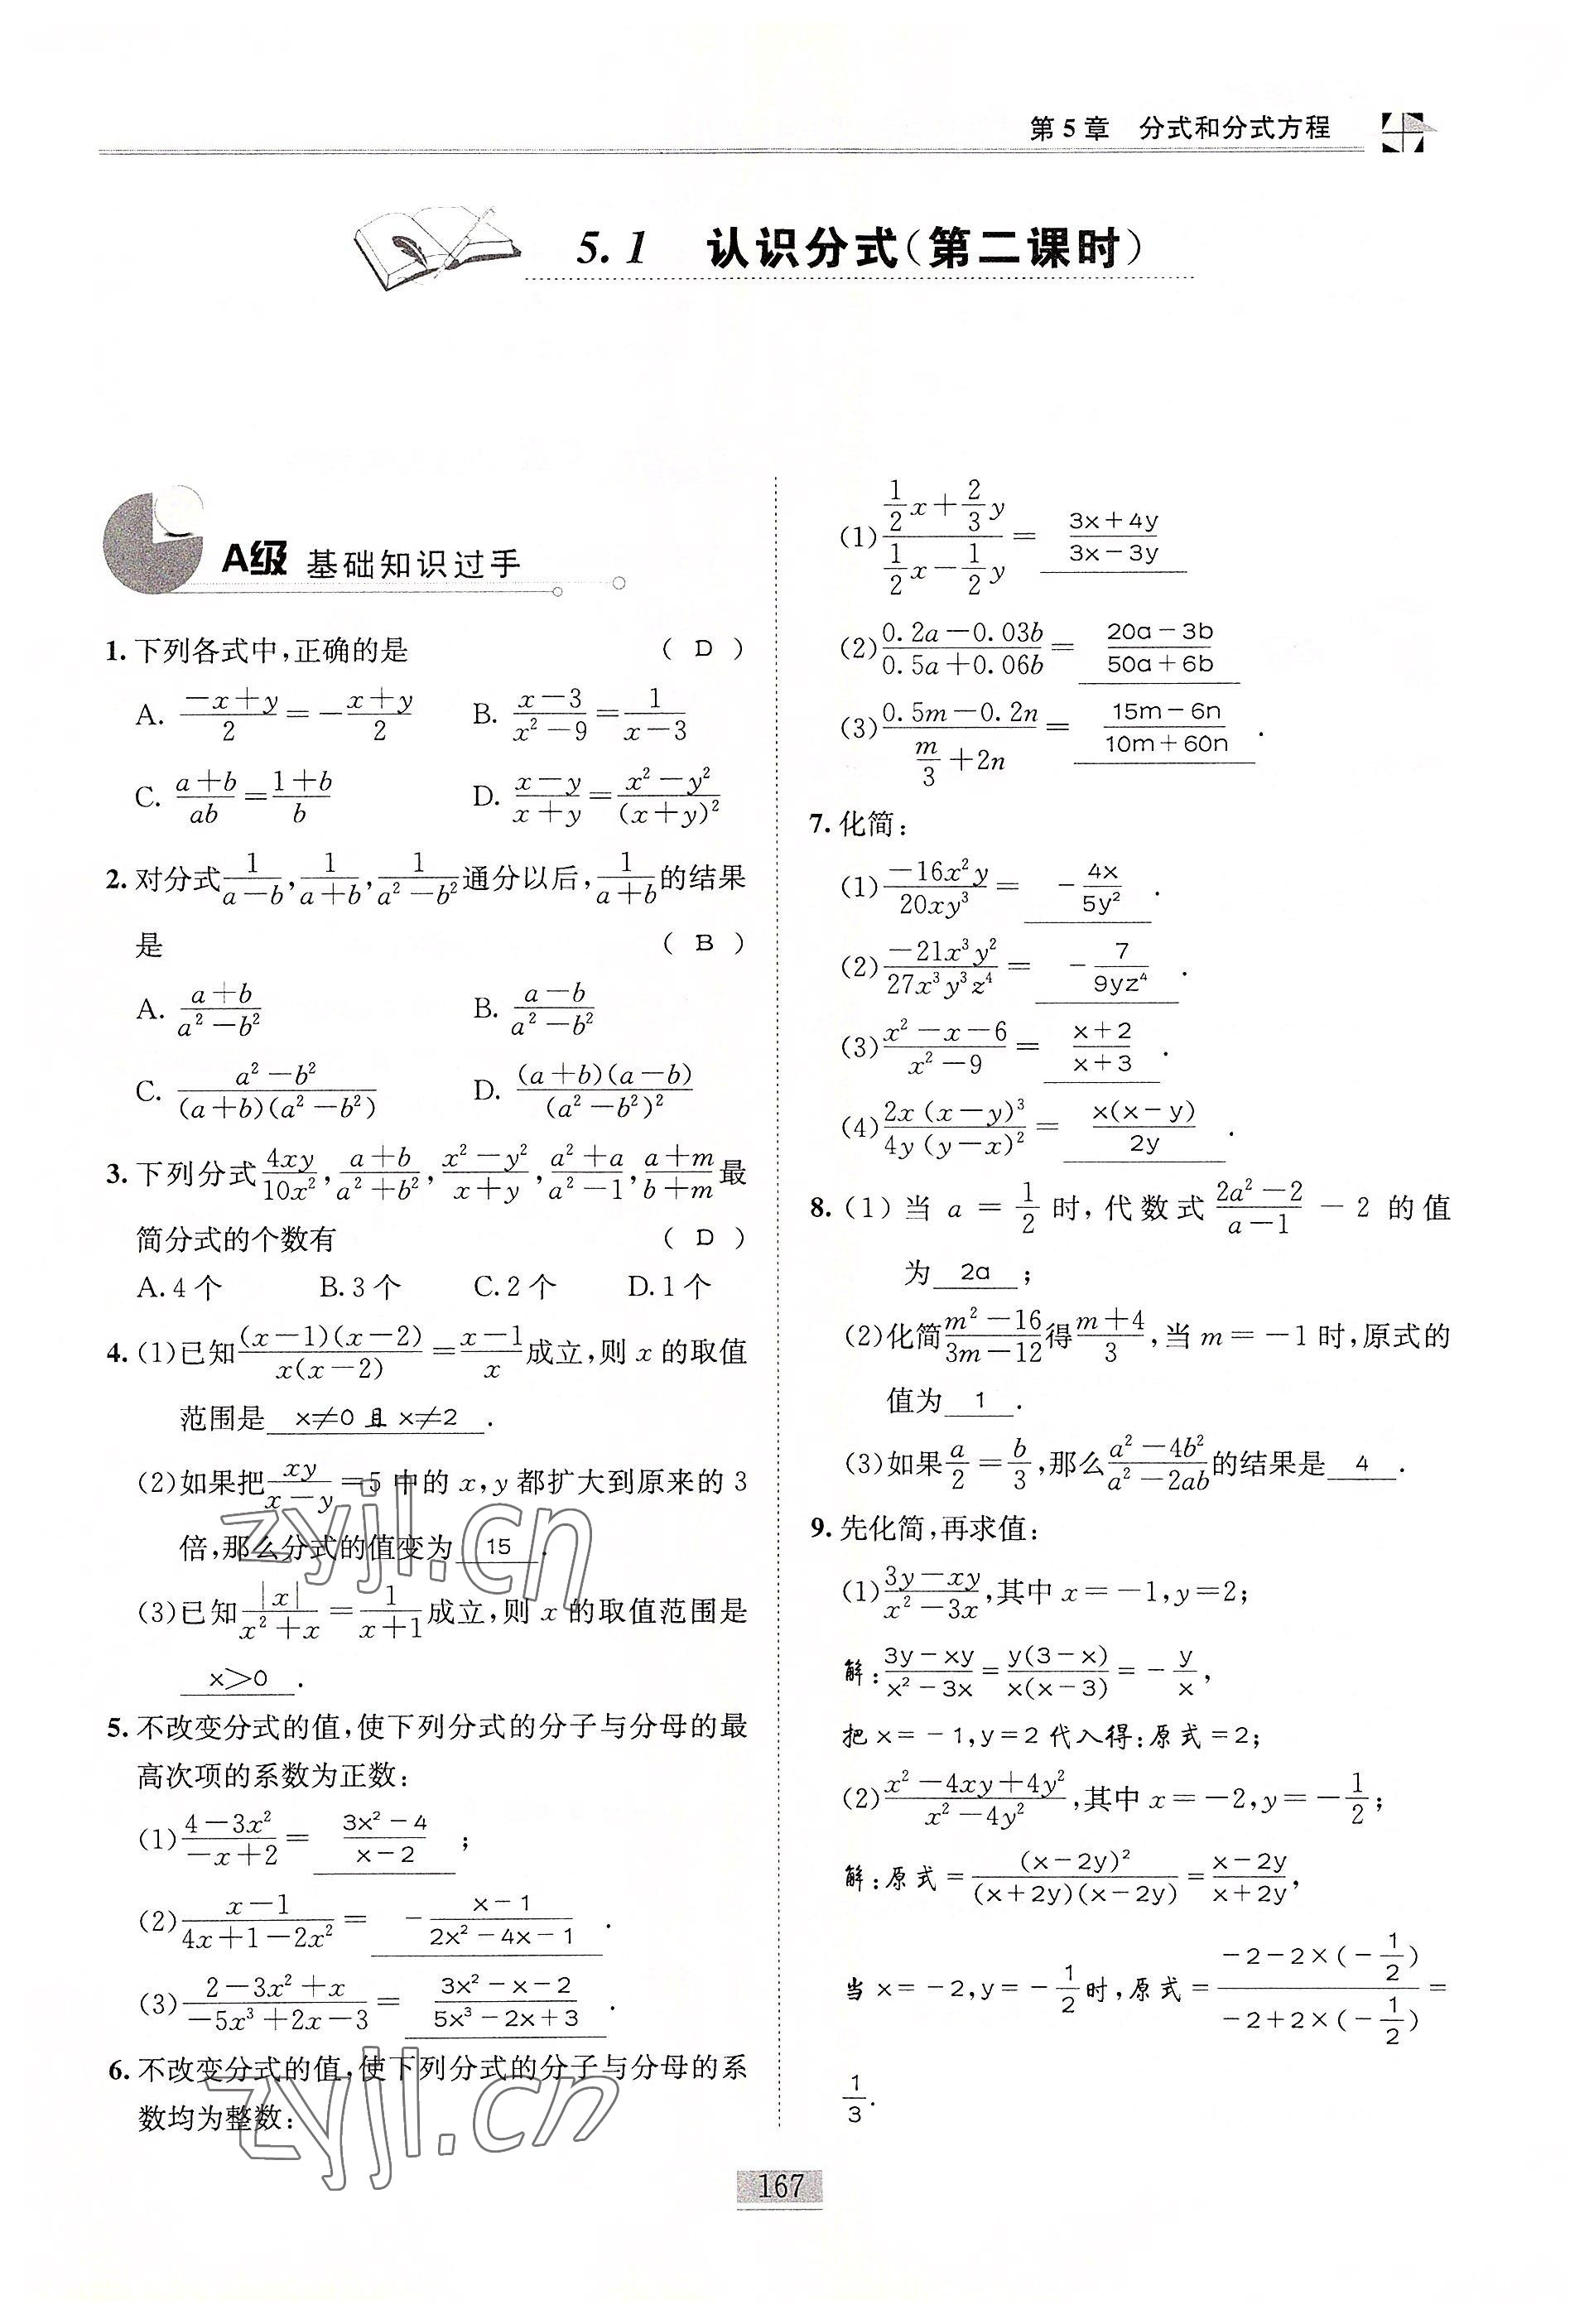 第 5 章　分式和分式方程
5.1　认识分式(第二课时)
A级 基础知识过手
1. 下列各式中,正确的是 ( D )
A. (-x+y)/2 = -(x+y)/2　B. (x-3)/(x²-9) = 1/(x-3)
C. (a+b)/ab = (1+b)/b　D. (x-y)/(x+y) = (x²-y²)/(x+y)²
2. 对分式 1/(a-b), 1/(a+b), 1/(a²-b²) 通分以后, 1/(a+b) 的结果
是 ( B )
A. (a+b)/(a²-b²)　B. (a-b)/(a²-b²)
C. (a²-b²)/((a+b)(a²-b²))　D. ((a+b)(a-b))/(a²-b²)²
3. 下列分式 4xy/10x², (a+b)/(a²+b²), (x²-y²)/(x+y), (a²+a)/(a²-1), (a+m)/(b+m) 最
简分式的个数有 ( D )
A. 4 个　B. 3 个　C. 2 个　D. 1 个
4. (1)已知 ((x-1)(x-2))/(x(x-2)) = (x-1)/x 成立,则 x 的取值
范围是 x≠0 且 x≠2 .
(2)如果把 xy/(x-y) = 5 中的 x,y 都扩大到原来的 3
倍,那么分式的值变为 15 .
(3)已知 |x|/(x²+x) = 1/(x+1) 成立,则 x 的取值范围是
x>0 .
5. 不改变分式的值,使下列分式的分子与分母的最
高次项的系数为正数:
(1) (4-3x²)/(-x+2) = (3x²-4)/(x-2) ;
(2) (x-1)/(4x+1-2x²) = -(x-1)/(2x²-4x-1) .
(3) (2-3x²+x)/(-5x³+2x-3) = (3x²-x-2)/(5x³-2x+3) .
6. 不改变分式的值,使下列分式的分子与分母的系
数均为整数:
(1) (1/2 x + 2/3 y)/(1/2 x - 1/2 y) = (3x+4y)/(3x-3y)
(2) (0.2a-0.03b)/(0.5a+0.06b) = (20a-3b)/(50a+6b)
(3) (0.5m-0.2n)/(m/3+2n) = (15m-6n)/(10m+60n) .
7. 化简:
(1) -16x²y/20xy³ = -4x/5y² .
(2) -21x³y²/27x³y³z⁴ = -7/9yz⁴ .
(3) (x²-x-6)/(x²-9) = (x+2)/(x+3) .
(4) 2x(x-y)³/4y(y-x)² = x(x-y)/2y .
8. (1) 当 a = 1/2 时, 代数式 (2a²-2)/(a-1) - 2 的值
为 2a ;
(2)化简 (m²-16)/(3m-12) 得 (m+4)/3 ,当 m=-1 时,原式的
值为 1 .
(3)如果 a/2 = b/3 ,那么 (a²-4b²)/(a²-2ab) 的结果是 4 .
9. 先化简,再求值:
(1) (3y-xy)/(x²-3x) ,其中 x=-1,y=2;
解: (3y-xy)/(x²-3x) = y(3-x)/x(x-3) = -y/x ,
把 x=-1,y=2 代入得:原式=2;
(2) (x²-4xy+4y²)/(x²-4y²) ,其中 x=-2,y=-1/2;
解:原式= (x-2y)²/((x+2y)(x-2y)) = (x-2y)/(x+2y) ,
当 x=-2,y=-1/2 时,原式= (-2-2×(-1/2))/(-2+2×(-1/2)) =
1/3 .
167
zyjl.cn
zyjl.cn